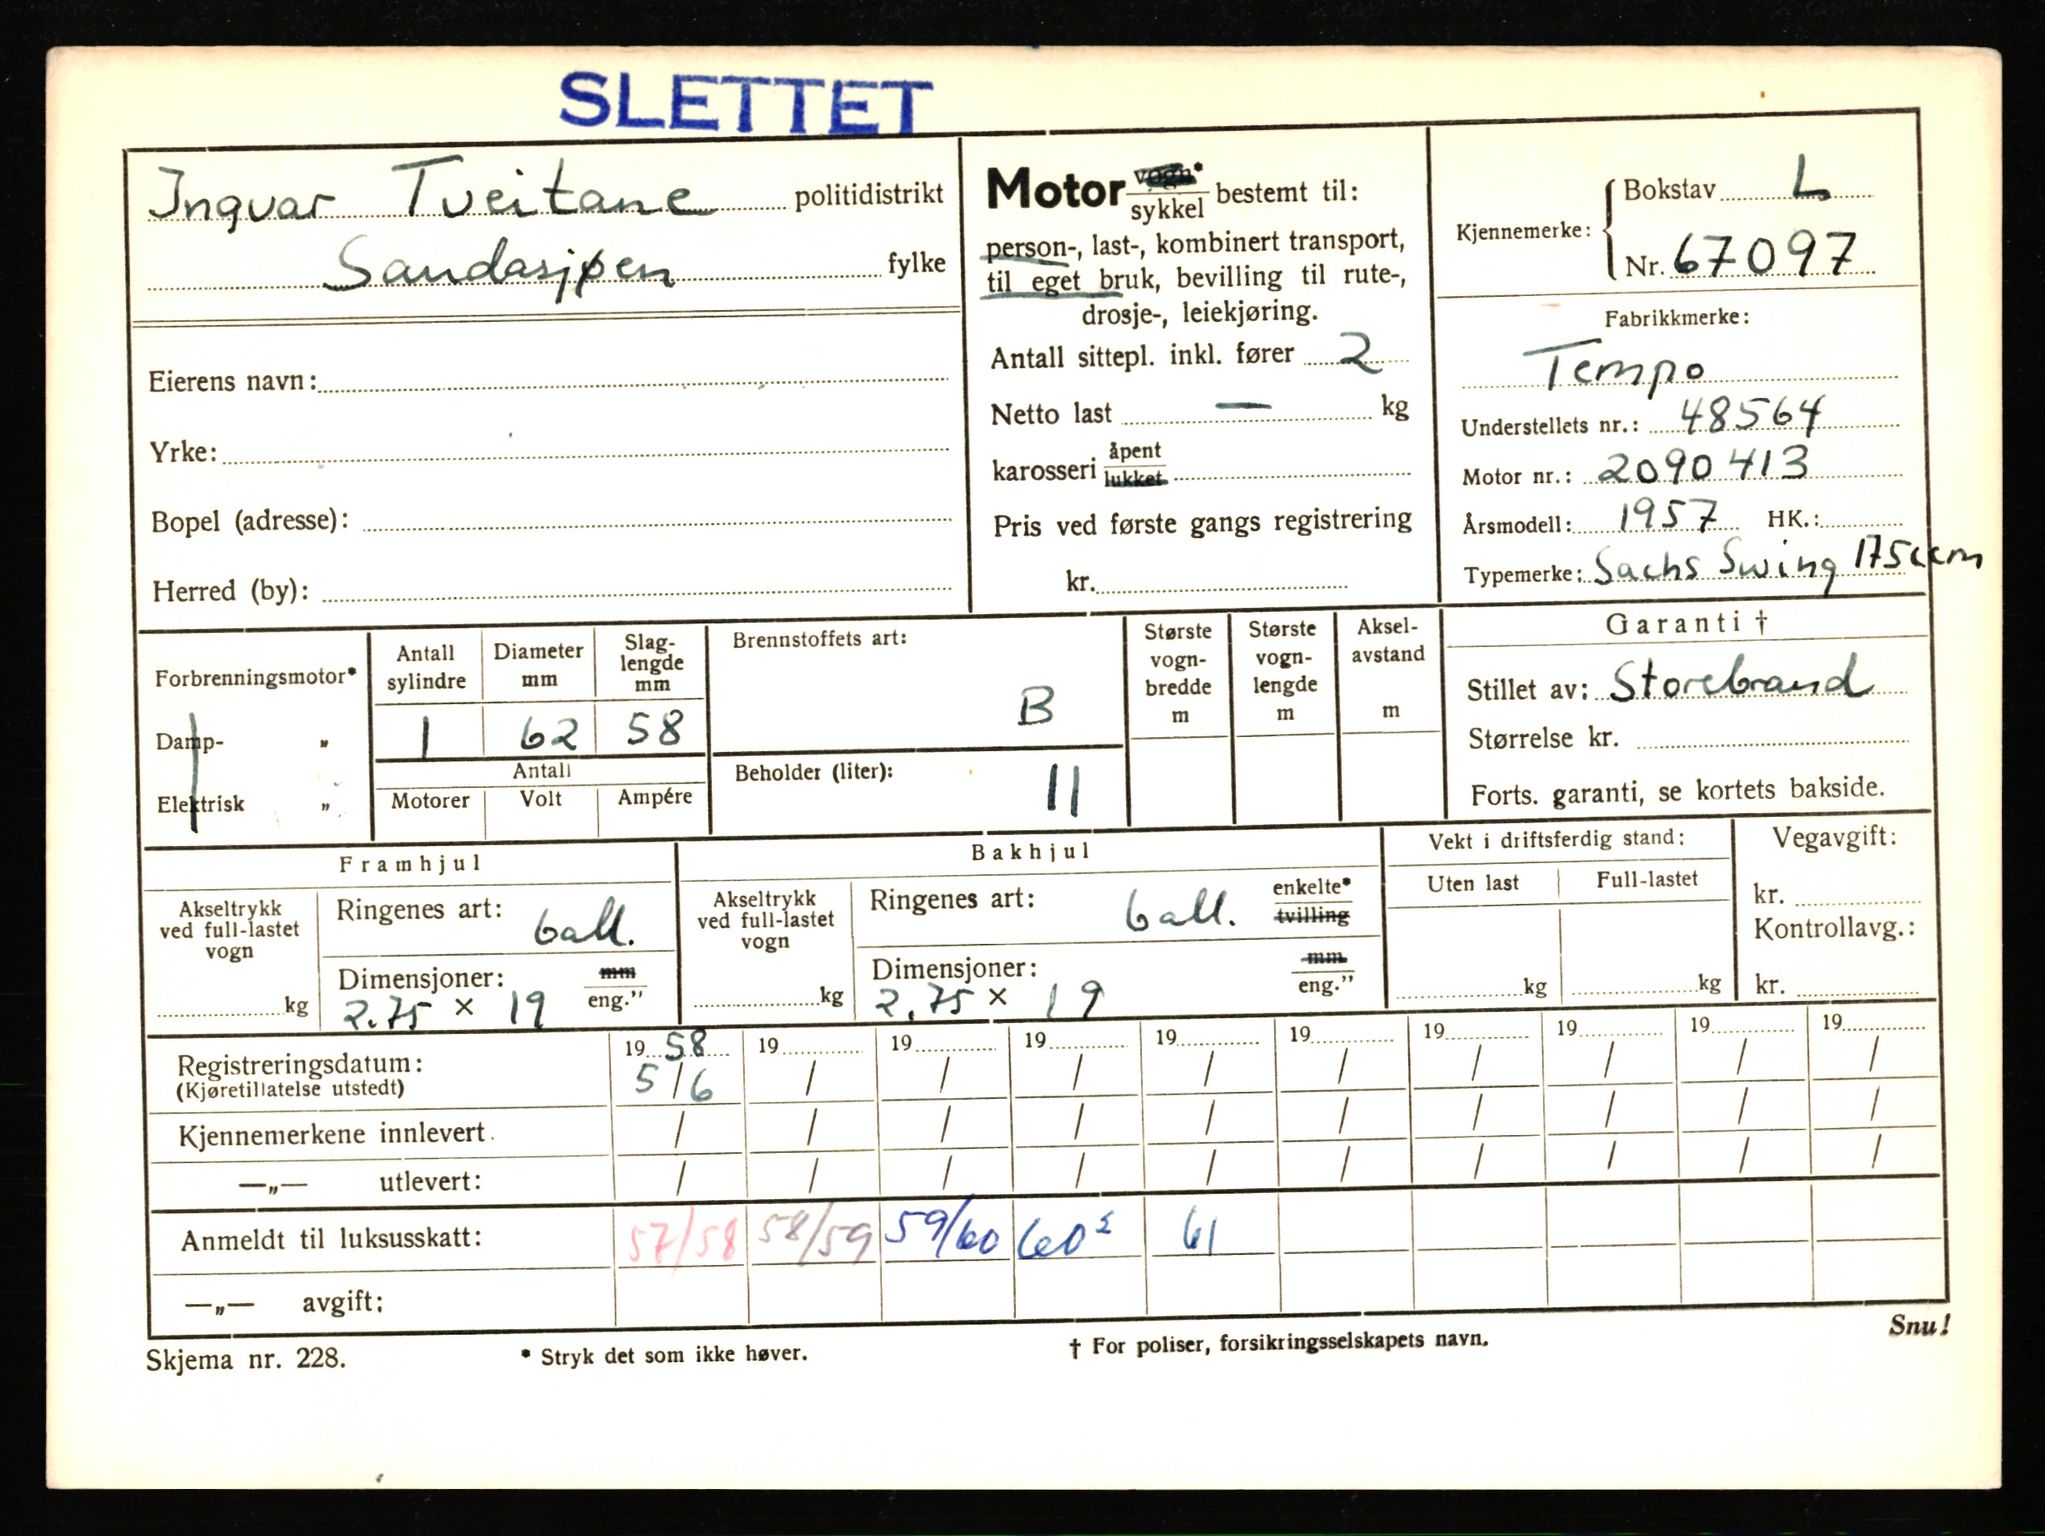 SLETTET
Ingvar Tveitane politidistrikt
Sandasjøen fylke
Eierens navn:
Yrke:
Bopel (adresse):
Herred (by):
Motor vogn* / sykkel bestemt til:
person-, last-, kombinert transport,
til eget bruk, bevilling til rute-,
drosje-, leiekjøring.
Antall sittepl. inkl. fører 2
Netto last — kg
karosseri åpent / lukket
Pris ved første gangs registrering
kr.
Kjennemerke: Bokstav L
Nr. 67097
Fabrikkmerke:
Tempo
Understellets nr.: 48564
Motor nr.: 2090413
Årsmodell: 1957 HK.:
Typemerke: Sachs Swing 175ccm
Forbrenningsmotor*
Damp- „
Elektrisk „
Antall sylindre
1
Diameter mm
62
Slag-lengde mm
58
Antall
Motorer Volt Ampére
Brennstoffets art:
B
Beholder (liter):
11
Største vogn-bredde m
Største vogn-lengde m
Aksel-avstand m
Garanti †
Stillet av: Storebrand
Størrelse kr.
Forts. garanti, se kortets bakside.
Framhjul
Akseltrykk ved full-lastet vogn
kg
Ringenes art:
ball.
Dimensjoner: mm / eng.”
2.75 × 19
Bakhjul
Akseltrykk ved full-lastet vogn
kg
Ringenes art: enkelte* / tvilling
ball.
Dimensjoner: mm / eng.”
2.75 × 19
Vekt i driftsferdig stand:
Uten last Full-lastet
kg kg
Vegavgift:
kr.
Kontrollavg.:
kr.
19 58 19 19 19 19 19 19 19 19 19
Registreringsdatum: 5/6 / / / / / / / / /
(Kjøretillatelse utstedt)
Kjennemerkene innlevert. / / / / / / / / / /
—„— utlevert: / / / / / / / / / /
Anmeldt til luksusskatt: 57/58 58/59 59/60 60½ 61
—„— avgift:
Snu!
Skjema nr. 228. * Stryk det som ikke høver. † For poliser, forsikringsselskapets navn.